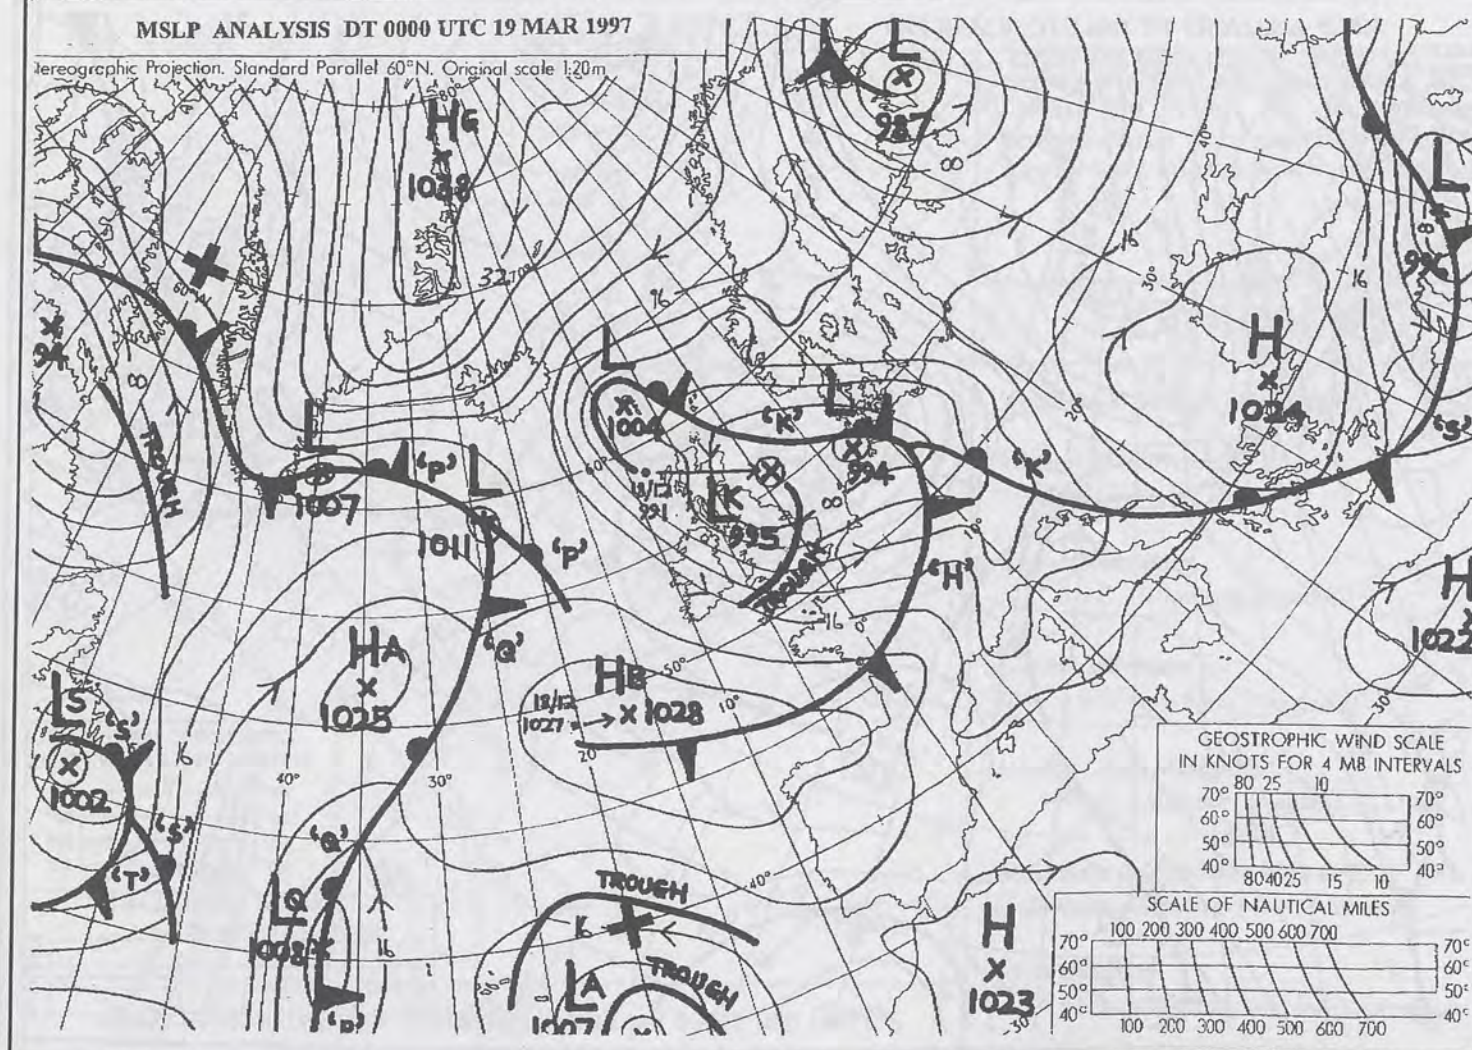 MSLP ANALYSIS DT 0000 UTC 19 MAR 1997
tereographic Projection. Standard Parallel 60°N. Original scale 1:20m
L
987
80°
HG
1038
40°
L
8
996
16
16
32
70°
30°
60°
96
94
8
H
1024
L
1004
L
'K'
994
20°
'K'
'S'
TROUGH
L
1007
'P'
L
60°
18/12
991
LK
995
8
1011
'P'
TROUGH
10°
'H'
H
1022
'Q'
16
0°
HA
1025
HB
50°
18/12
1027
1028
10°
30°
LS
'S'
1002
16
40°
30°
20
'S'
'T'
'Q'
40°
TROUGH
LQ
1008
16
16
TROUGH
LA
1007
H
1023
30°
'R'
GEOSTROPHIC WIND SCALE
IN KNOTS FOR 4 MB INTERVALS
80 25 10
70° 70°
60° 60°
50° 50°
40° 40°
80 40 25 15 10
SCALE OF NAUTICAL MILES
100 200 300 400 500 600 700
70° 70°
60° 60°
50° 50°
40° 40°
100 200 300 400 500 600 700